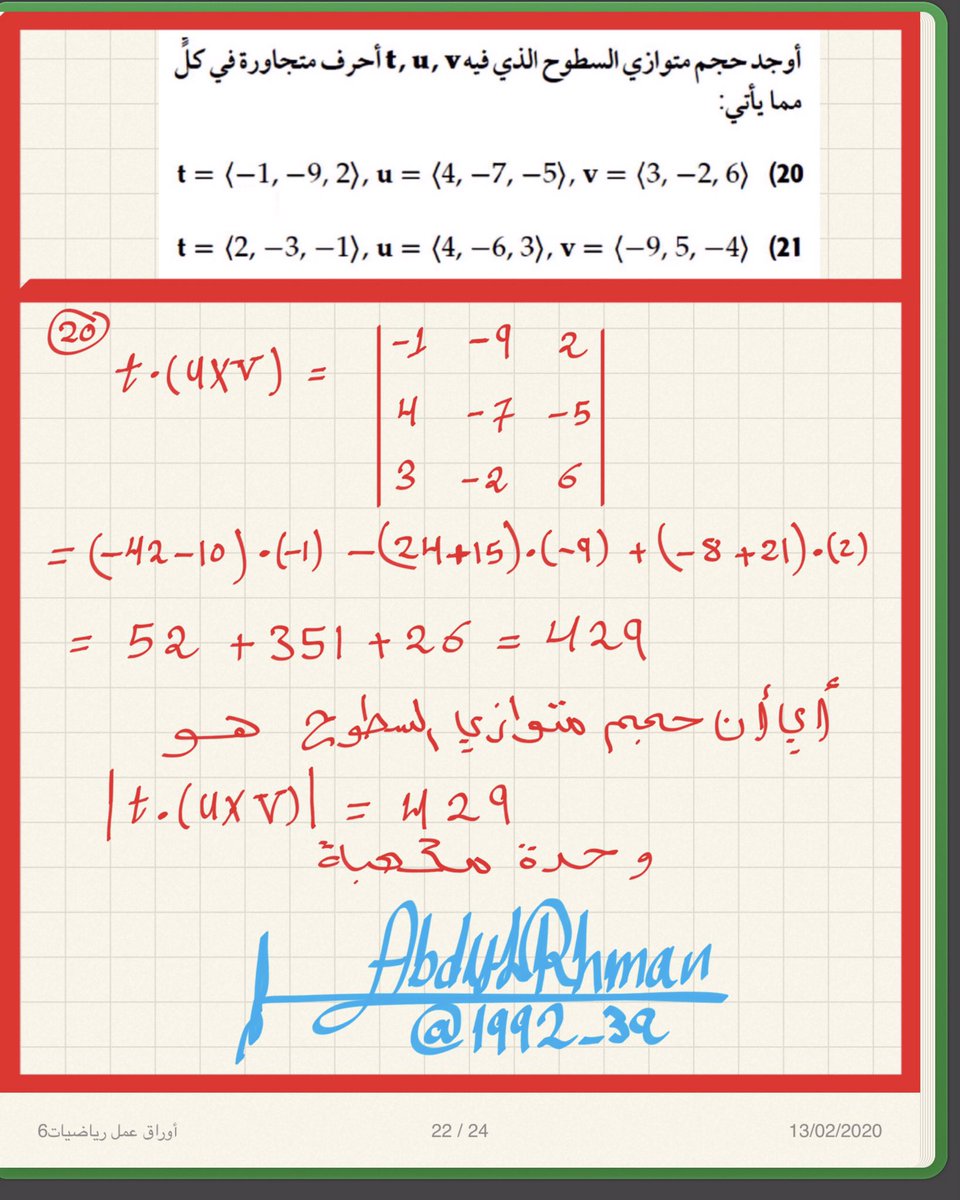 أوجد حجم متوازي السطوح الذي فيه t, u, v أحرف متجاورة في كلٍّ
مما يأتي:
t = ⟨−1, −9, 2⟩, u = ⟨4, −7, −5⟩, v = ⟨3, −2, 6⟩ (20
t = ⟨2, −3, −1⟩, u = ⟨4, −6, 3⟩, v = ⟨−9, 5, −4⟩ (21
20
-1 -9 2
t·(u×v) =
4 -7 -5
3 -2 6
= (-42-10)·(-1) -(24+15)·(-9) + (-8+21)·(2)
= 52 + 351 + 26 = 429
أي أن حجم متوازي السطوح هو
|t·(u×v)| = 429
وحدة مكعبة
AbdulRhman
@1992_39
أوراق عمل رياضيات6
22 / 24
13/02/2020